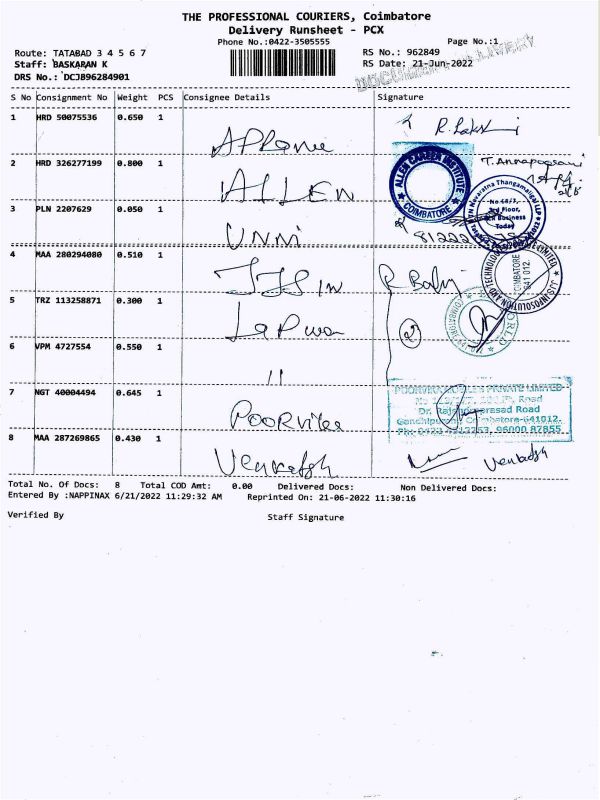 THE PROFESSIONAL COURIERS, Coimbatore
Delivery Runsheet - PCX
Phone No.:0422-3505555
Page No.:1
Route: TATABAD 3 4 5 6 7
RS No.: 962849
Staff: BASKARAN K
RS Date: 21-Jun-2022
DRS No.: DCJ896284901
S No Consignment No Weight PCS Consignee Details Signature
1 HRD 50075536 0.650 1
R. Lakshmi
2 HRD 326277199 0.800 1 ALLEN
ALLEN CAREER INSTITUTE
★ COIMBATORE ★
T. Annapoorani
3 PLN 2207629 0.050 1 UNNI
No 68/3,
3rd Floor,
Business
Today
81222
4 MAA 280294080 0.510 1 JJS IN
JJS INFOSOLUTION AND TECHNOLOGIES LIMITED
COIMBATORE
641 012.
R. Balaji
5 TRZ 113258871 0.300 1
2
6 VPM 4727554 0.550 1 11
7 NGT 40004494 0.645 1 POORVIKA
POORVIKA MOBILES PRIVATE LIMITED
Road
Dr. Rajendraprasad Road
Gandhipuram, Coimbatore-641012.
96000 87855
8 MAA 287269865 0.430 1 Venkatesh
Venkatesh
Total No. Of Docs: 8 Total COD Amt: 0.00 Delivered Docs: Non Delivered Docs:
Entered By :NAPPINAX 6/21/2022 11:29:32 AM Reprinted On: 21-06-2022 11:30:16
Verified By Staff Signature